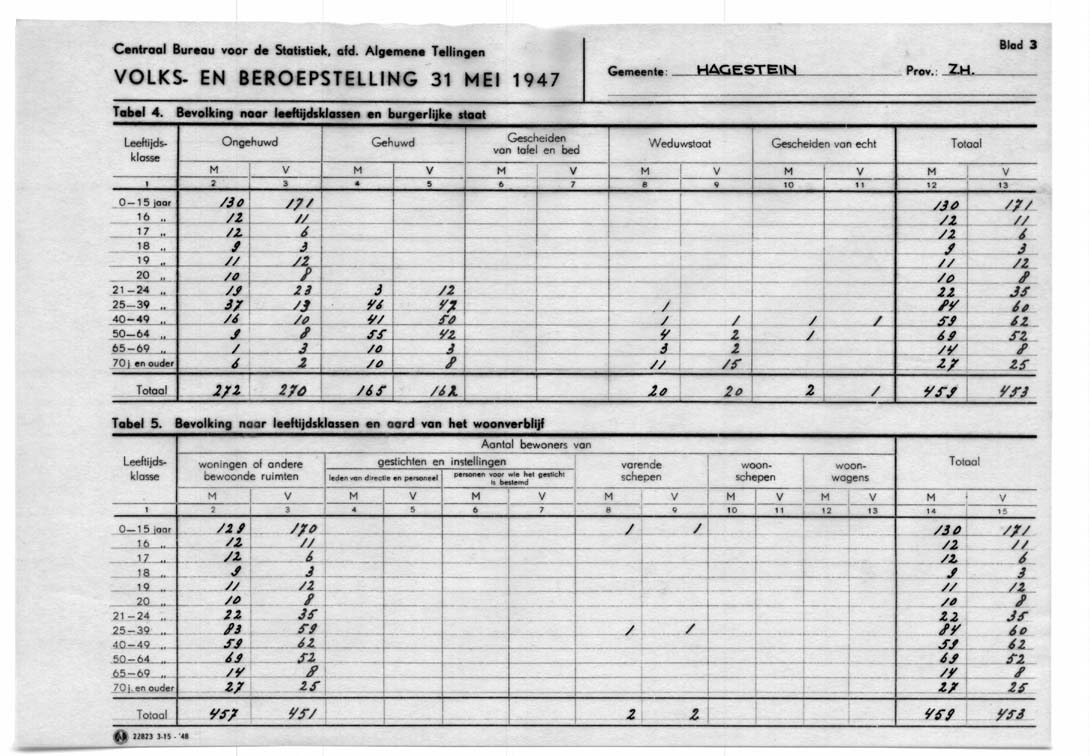 Centraal Bureau voor de Statistiek, afd. Algemene Tellingen
VOLKS- EN BEROEPSTELLING 31 MEI 1947
Blad 3
Gemeente: HAGESTEIN Prov.: Z.H.
Tabel 4. Bevolking naar leeftijdsklassen en burgerlijke staat
Leeftijds-klasse Ongehuwd Gehuwd Gescheiden van tafel en bed Weduwstaat Gescheiden van echt Totaal
M V M V M V M V M V M V
1 2 3 4 5 6 7 8 9 10 11 12 13
0—15 jaar 130 171 130 171
16 „ 12 11 12 11
17 „ 12 6 12 6
18 „ 9 3 9 3
19 „ 11 12 11 12
20 „ 10 8 10 8
21—24 „ 19 23 3 12 22 35
25—39 „ 37 13 46 47 1 84 60
40—49 „ 16 10 41 50 1 1 1 1 59 62
50—64 „ 9 8 55 42 4 2 1 69 52
65—69 „ 1 3 10 3 3 2 14 8
70 j en ouder 6 2 10 8 11 15 27 25
Totaal 272 270 165 162 20 20 2 1 459 453
Tabel 5. Bevolking naar leeftijdsklassen en aard van het woonverblijf
Aantal bewoners van
Leeftijds-klasse woningen of andere bewoonde ruimten gestichten en instellingen varende schepen woon-schepen woon-wagens Totaal
leden van directie en personeel personen voor wie het gesticht is bestemd
M V M V M V M V M V M V M V
1 2 3 4 5 6 7 8 9 10 11 12 13 14 15
0—15 jaar 129 170 1 1 130 171
16 „ 12 11 12 11
17 „ 12 6 12 6
18 „ 9 3 9 3
19 „ 11 12 11 12
20 „ 10 8 10 8
21—24 „ 22 35 22 35
25—39 „ 83 59 1 1 84 60
40—49 „ 59 62 59 62
50—64 „ 69 52 69 52
65—69 „ 14 8 14 8
70 j. en ouder 27 25 27 25
Totaal 457 451 2 2 459 453
22823 3-15 - '48